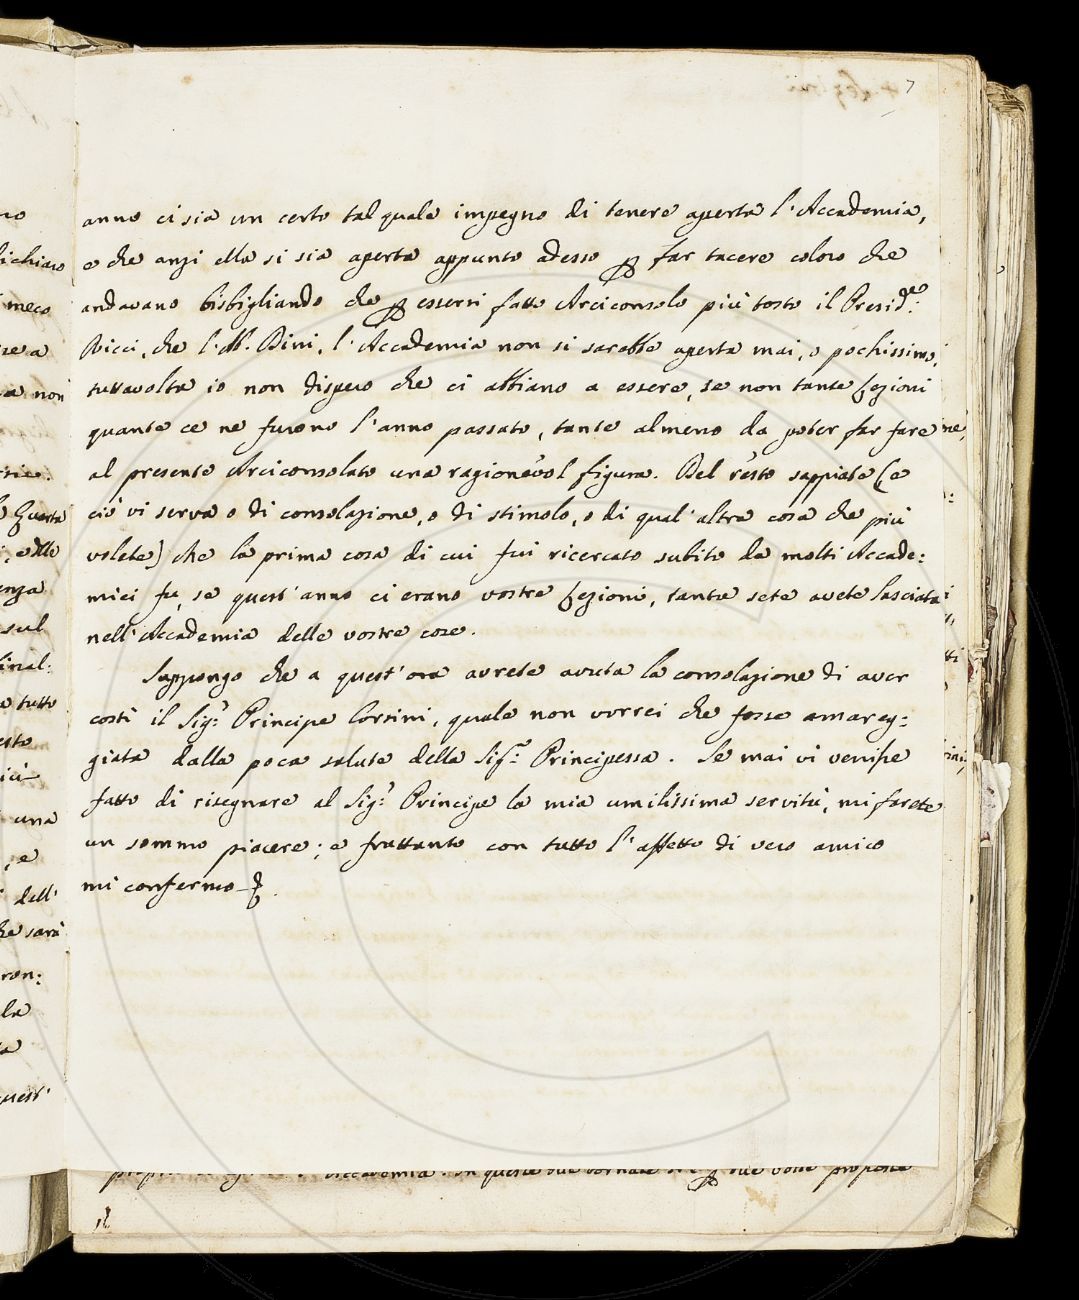 7
anno ci sia un certo tal quale impegno di tenere aperta l'Accademia,
e che anzi ella si sia aperta appunto adesso p far tacere coloro che
andavano bisbigliando che p essersi fatto Arciconsolo più tosto il Presid.te
Ricci, che l'Ab. Dini, l'Accademia non si sarebbe aperta mai, o pochissimo,
tuttavolta io non dispero che ci abbiano a essere, se non tante Lezioni
quante ce ne furono l'anno passato, tante almeno da poter far fare
al presente Arciconsolato una ragionevol figura. Del resto sappiate (e
ciò vi serva o di consolazione, o di stimolo, o di qual'altra cosa che più
volete) che la prima cosa di cui fui ricercato subito da molti Accade:
mici fu, se quest'anno ci erano vostre Lezioni, tanta sete avete lasciata
nell'Accademia delle vostre cose.
Suppongo che a quest'ora avrete avuta la consolazione di aver
costì il Sig.r Principe Corsini, quale non vorrei che fosse amareg:
giata dalla poca salute della Sig.ra Principessa. Se mai vi venisse
fatto di risegnare al Sig.r Principe la mia umilissima servitù, mi farete
un sommo piacere; e frattanto con tutto l'affetto di vero amico
mi confermo
Accademia. In queste due tornate si è p due volte proposta
il